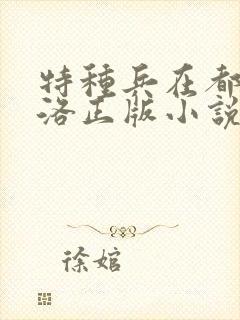 特種兵在都
洛正版小説
徐婠